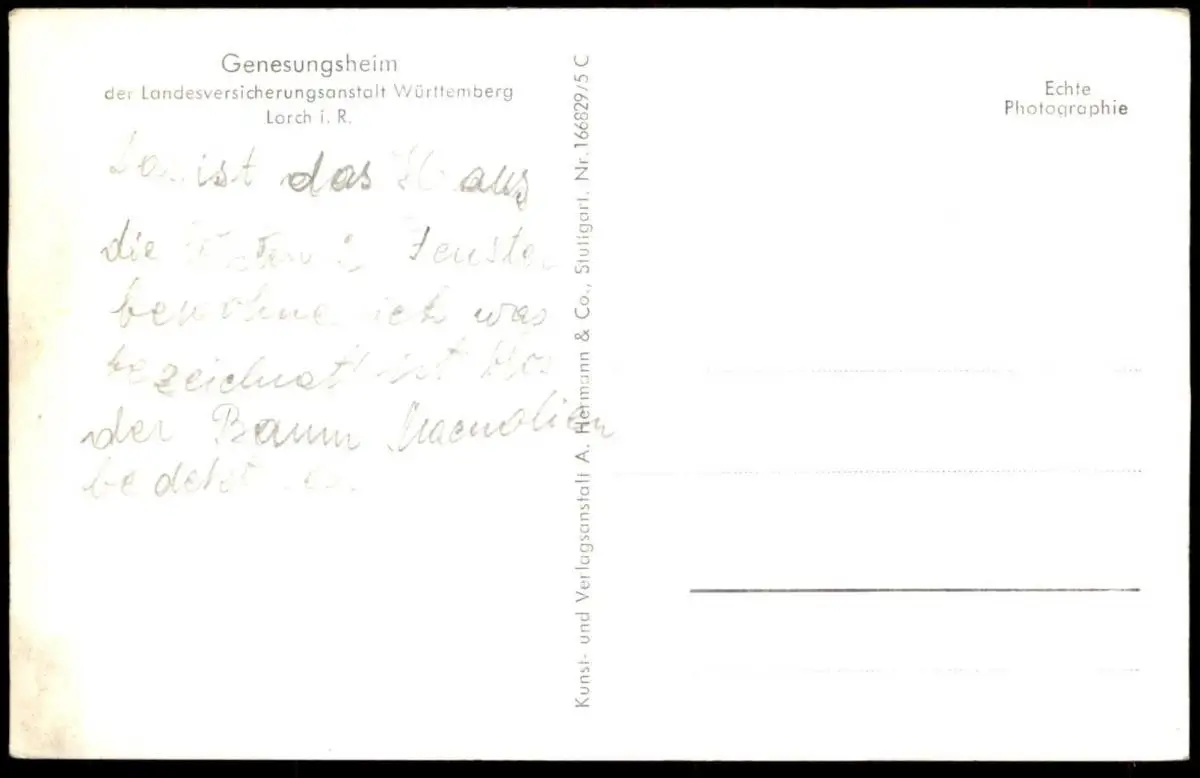 Genesungsheim
der Landesversicherungsanstalt Württemberg
Lorch i. R.
ist das Haus
die Fenster
bewohne ich was
bezeichnat ist
der Baum
bedetet
Kunst- und Verlagsanstalt A. Hermann & Co., Stuttgart. Nr. 166829/5 C
Echte
Photographie